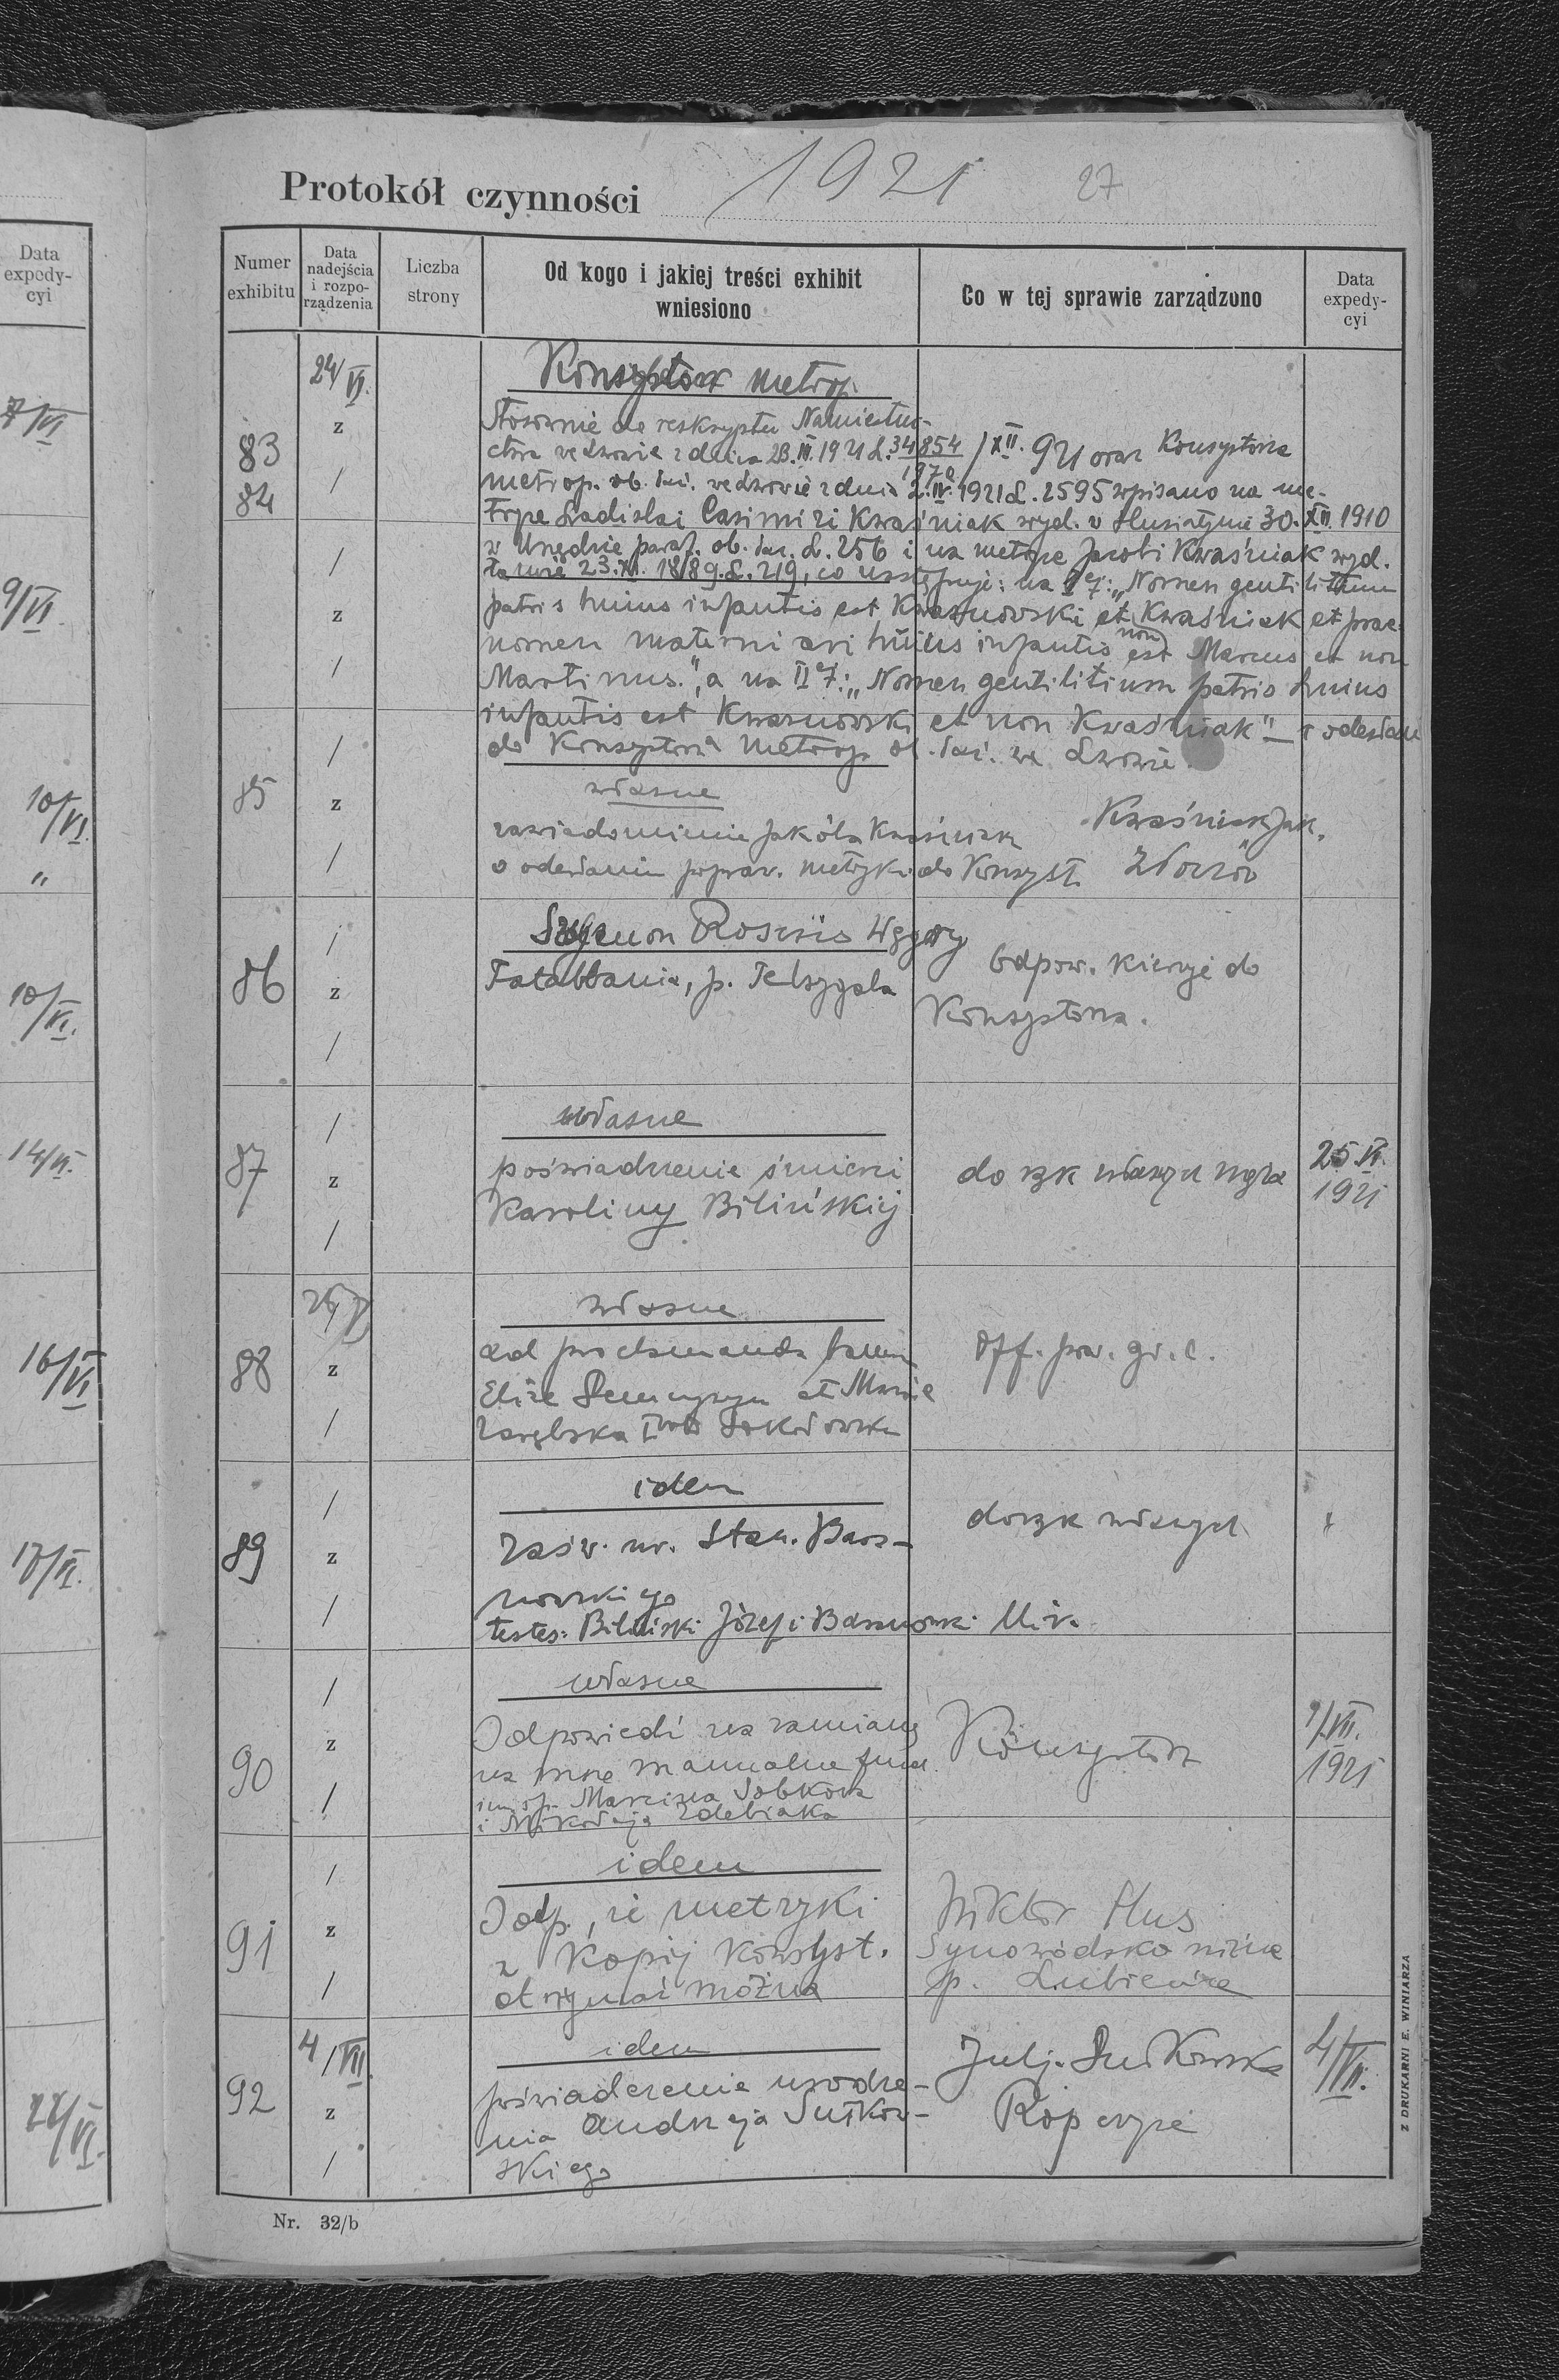 Data
expedy-
cyi
7/VI
9/VI
10/VI.
"
10/VI.
14/VI.
16/VI
17/VI.
22/VI.
Protokół czynności 1921 27
Numer
exhibitu
Data
nadejścia
i rozpo-
rządzenia
Liczba
strony
Od kogo i jakiej treści exhibit
wniesiono
Co w tej sprawie zarządzono
Data
expedy-
cyi
24/VI.
Konsystorz metrop.
83
84
z
Stosownie do reskryptu Namiestni-
ctwa we Lwowie z dnia 23.III.1921 L. 34854/1970 /XII. 921 oraz Konsystorza
metrop. ob. łać. we Lwowie z dnia 2.IV.1921 L. 2595 wpisano na me-
trykę Ladislai Casimiri Kwaśniak wyd. w Husiatynie 30.XII.1910
w Urzędzie paraf. ob. łac. L. 256 i na metrykę Jacobi Kwaśniak wyd.
tamże 23.XI.1889. L. 219, co następuje: na I ej: „Nomen gentilitium
patris huius infantis est Kwasnowski et Kwaśniak et prae-
z
non
nomen materni avi huius infantis est Marcus et non
Martinus.", a na II ej: „Nomen gentilitium patris huius
infantis est Kwasnowski et non Kwaśniak" — i odesłano
do Konsystorza metrop. ob. łać. we Lwowie.
85
z
własne
zawiadomienie Jakóba Kwaśniaka
o odesłaniu popraw. metryki do Konsyst.
Kwaśniak Jak.
Złoczów
86
z
Węgry
p.
Odpow. kieruje do
Konsystorza.
87
z
własne
poświadczenie śmierci
Karoliny Bilińskiej
do rąk własnych
25.VI.
1921
88
z
własne
ad proclamanda banna
et Maria
Off. par. gr. c.
89
z
idem
zaśw. ur. Stan. Barz-
nowskiego
testes: Biliński Józef i Barznowski Mik.
do rąk własnych
90
z
własne
Odpowiedź na zamianę
na msze manualne fund.
im. śp. Marcina Sobkowa
i Mikołaja Zdebiaka
Konsystorz
1/VII.
1921
91
z
idem
Odp., że metryki
z kopij Konsyst.
otrzymać można
Wiktor Hus
Synowódzko niżne
p. Lubieńce
92
4/VII
z
idem
poświadczenie urodze-
nia Andrzeja Sutkow-
skiego
Julj. Sutkowska
Kopczyńce
4/VII.
Nr. 32/b
Z DRUKARNI E. WINIARZA